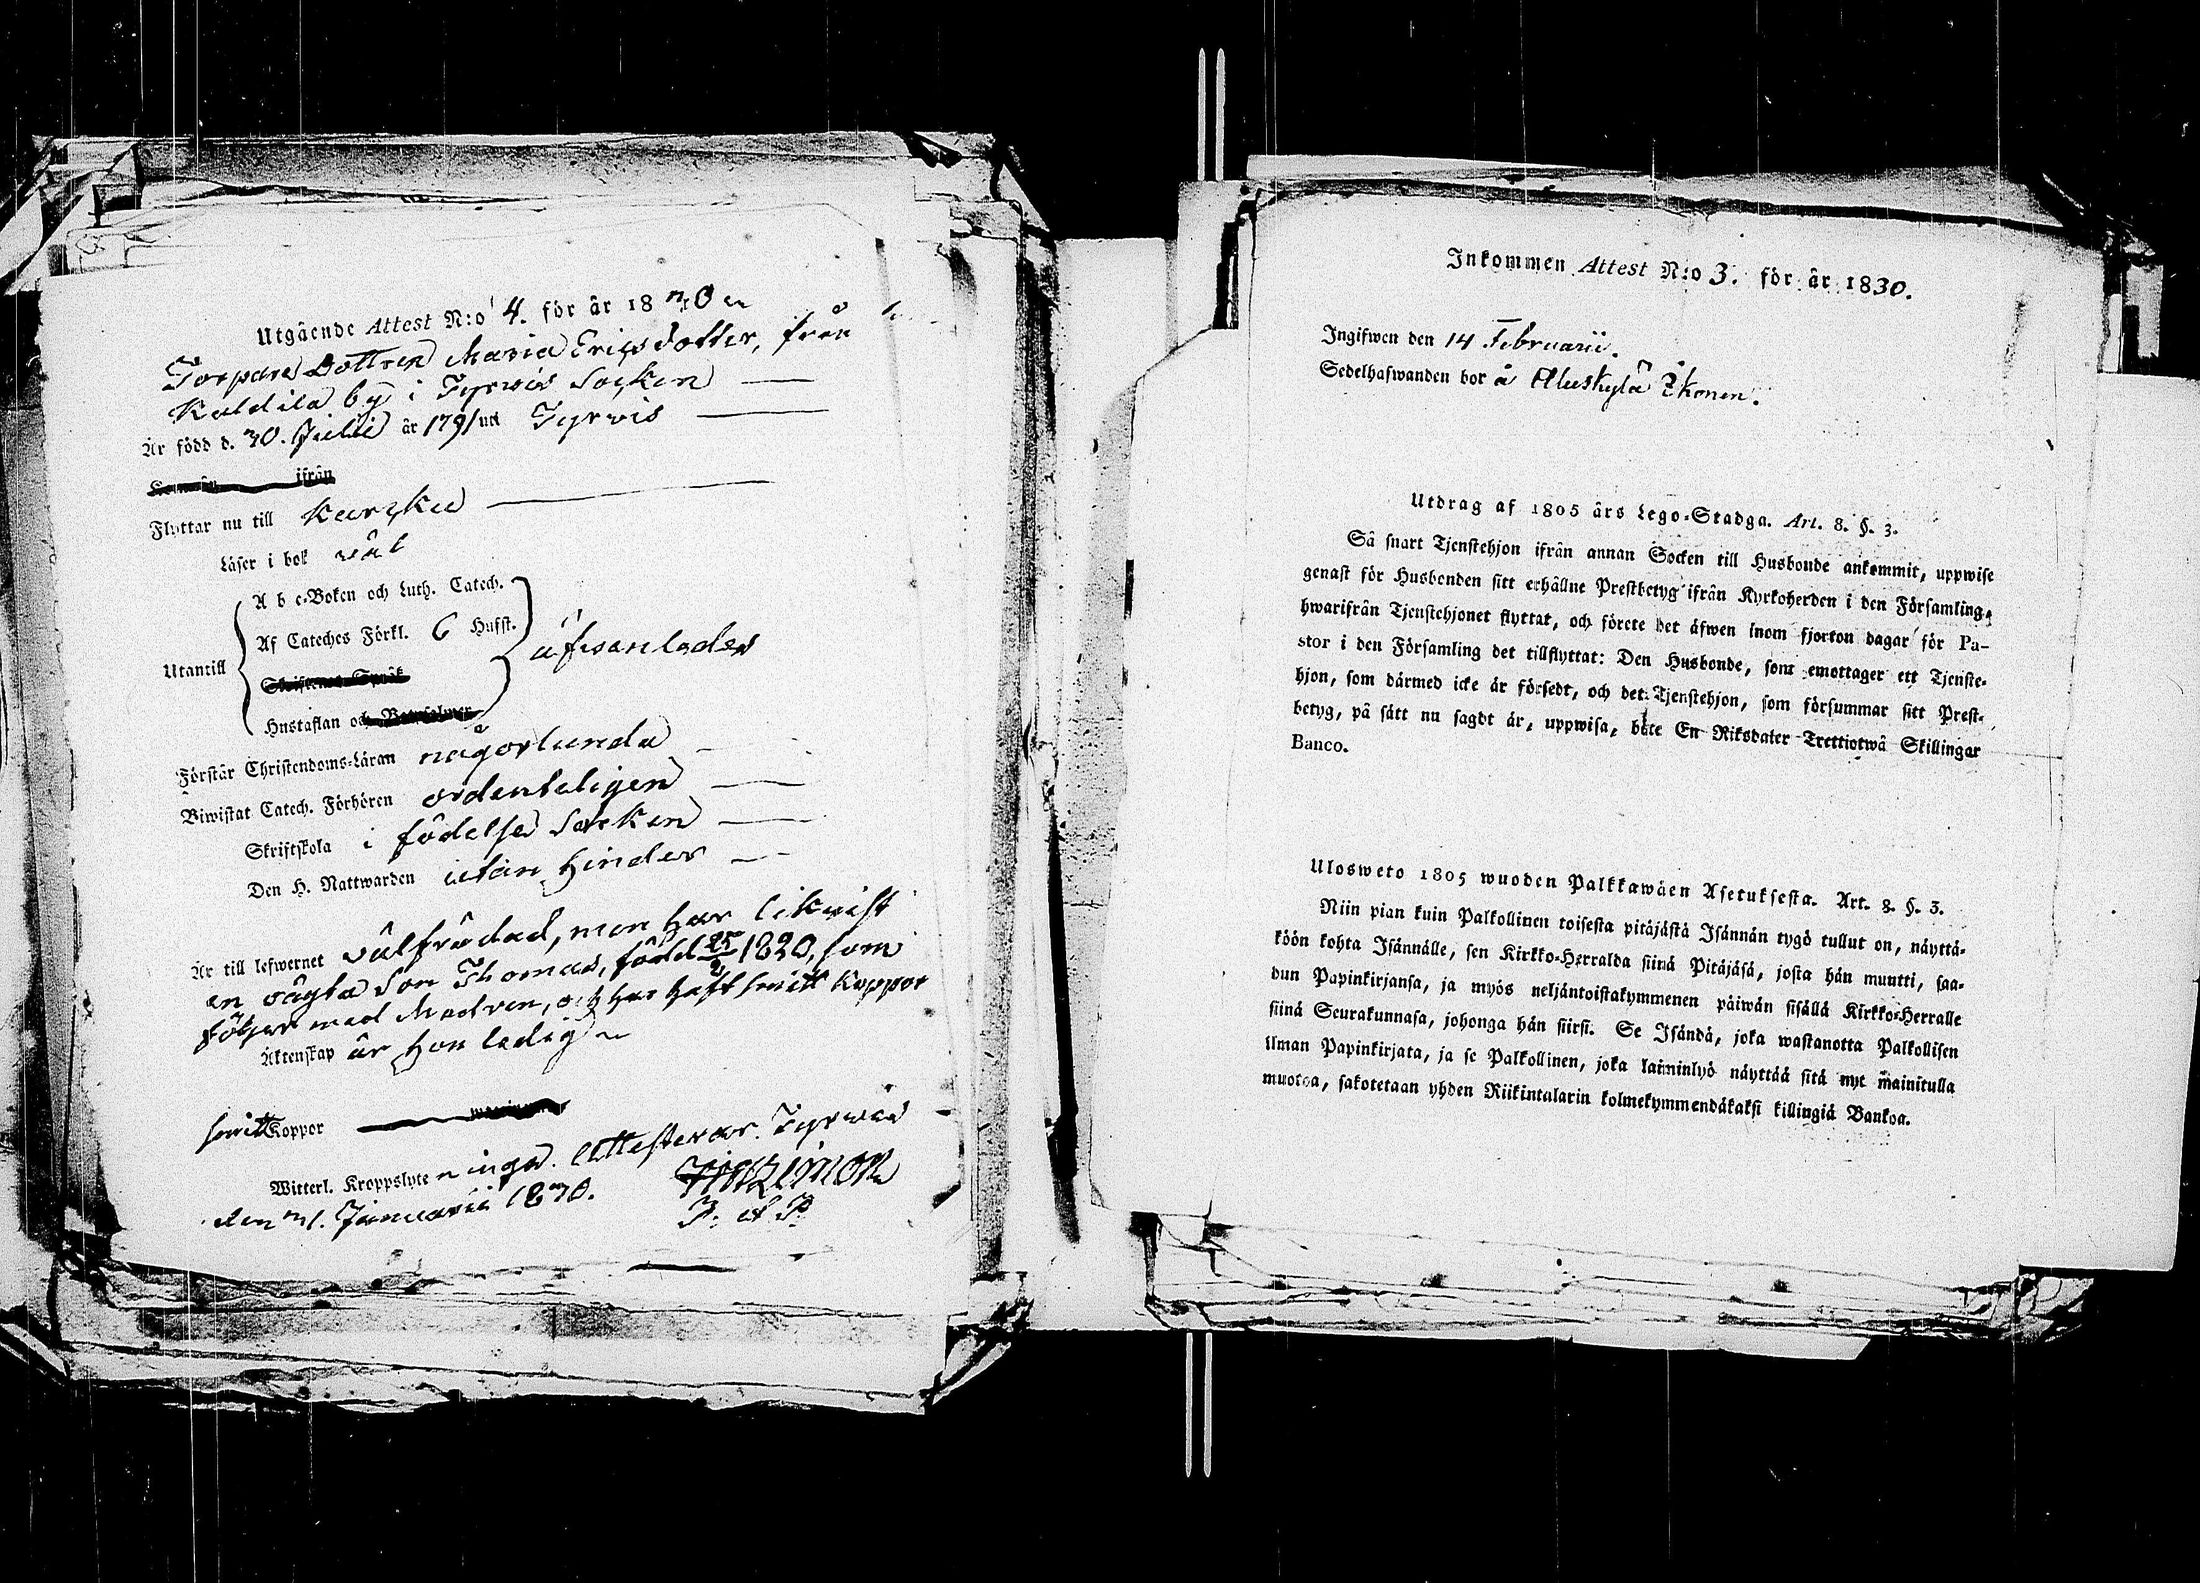 Utgående Attest N:o 4. för år 1830
Torpare Dottren Maria Ericsdotter, från
Kaldila by i Tyrvis Socken
Är född d. 30. Julii år 1791 uti Tyrvis
ifrån
Flyttar nu till Karkku
Läser i bok väl
A b c-Boken och Luth. Catech.
Af Cateches Förkl. 6 Hufst.
Utantill
Skriftenes Språk
Hustaflan och Botpsalmer
Förstår Christendoms-Läran någorlunda
Biwistat Catech. Förhören ordenteligen
Skriftskola i födelse Socken
Den H. Nattwarden utan hinder
Är till lefwernet välfrädad, men har likvist
en oägta Son Thomas, född 25/2 1820, som
följer med Modren, och har haft smitt Koppor
Äktenskap är hon ledig
smitt Koppor
Witterl. Kroppslyten inga. Attesterar. Tyrwis
den 31. Januarii 1830.
P. et P.
Inkommen Attest N:o 3. för år 1830.
Ingifwen den 14 Februarii.
Sedelhafwanden bor å Aluskylä Ikonen.
Utdrag af 1805 års Lego-Stadga. Art. 8. §. 3.
Så snart Tjenstehjon ifrån annan Socken till Husbonde ankommit, uppwise
genast för Husbonden sitt erhållne Prestbetyg ifrån Kyrkoherden i den Församling,
hwarifrån Tjenstehjonet flyttat, och förete det äfwen inom fjorton dagar för Pa-
stor i den Församling det tillflyttat: Den Husbonde, som emottager ett Tjenste-
hjon, som därmed icke är försedt, och det Tjenstehjon, som försummar sitt Prest-
betyg, på sätt nu sagdt är, uppwisa, böte En Riksdaler Trettiotwå Skillingar
Banco.
Ulosweto 1805 wuoden Palkkawäen Asetuksesta. Art. 8. §. 3.
Niin pian kuin Palkollinen toisesta pitäjästä Isännän tygö tullut on, näyttä-
köön kohta Isännälle, sen Kirkko-Herralda siinä Pitäjäsä, josta hän muutti, saa-
dun Papinkirjansa, ja myös neljäntoistakymmenen päiwän sisällä Kirkko-Herralle
siinä Seurakunnasa, johonga hän siirsi. Se Isändä, joka wastanotta Palkollisen
ilman Papinkirjata, ja se Palkollinen, joka laiminlyö näyttää sitä nyt mainitulla
muotoa, sakotetaan yhden Riikintalarin kolmekymmendäkaksi killingiä Bankoa.